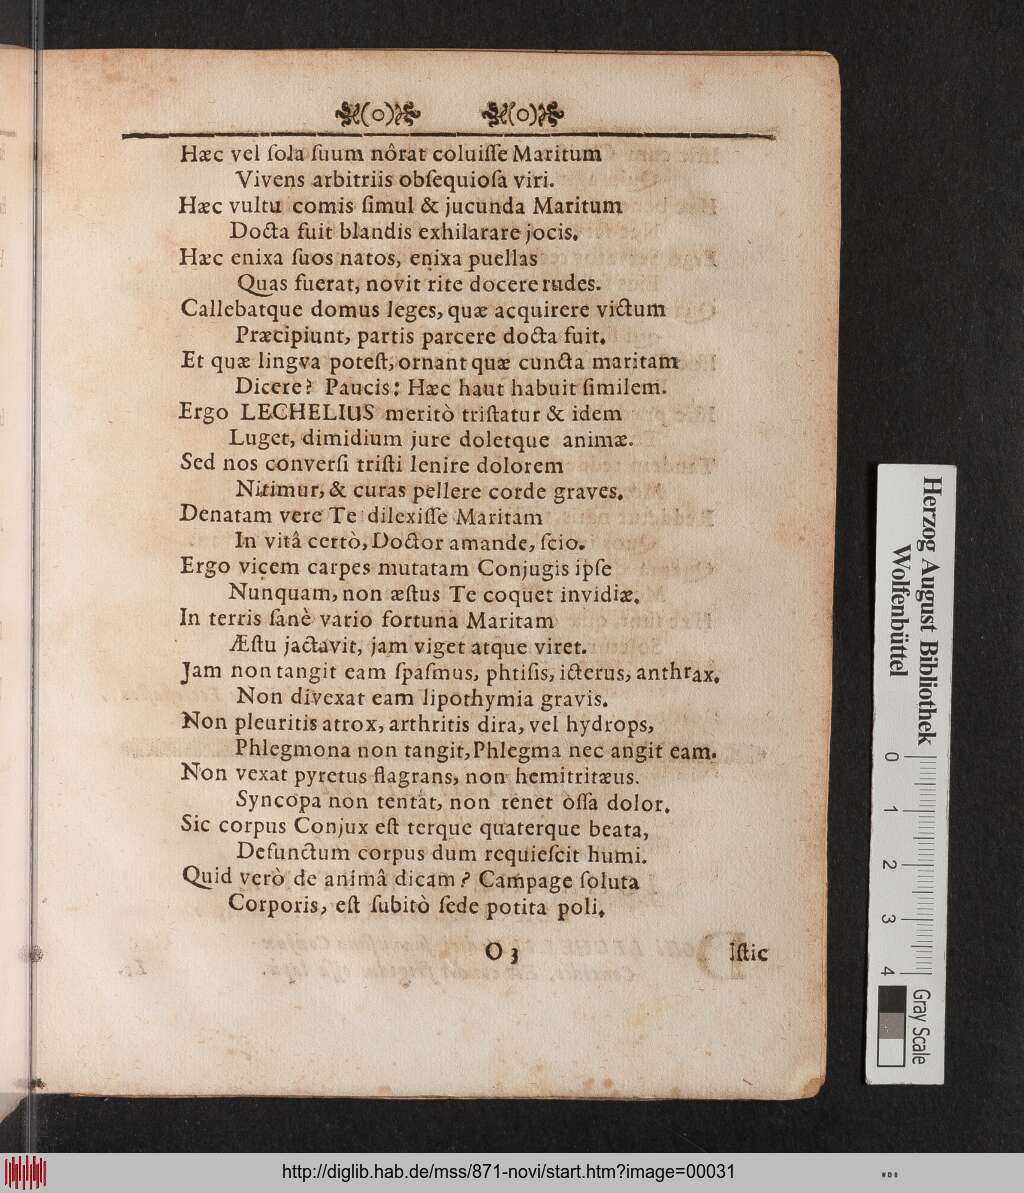 Hæc vel ſola ſuum nôrat coluiſſe Maritum
Vivens arbitriis obſequioſa viri.
Hæc vultu comis ſimul & jucunda Maritum
Docta fuit blandis exhilarare jocis.
Hæc enixa ſuos natos, enixa puellas
Quas fuerat, novit rite docere rudes.
Callebatque domus leges, quæ acquirere victum
Præcipiunt, partis parcere docta fuit.
Et quæ lingva poteſt, ornant quæ cuncta maritam
Dicere? Paucis: Hæc haut habuit ſimilem.
Ergo LECHELIUS meritò triſtatur & idem
Luget, dimidium jure doletque animæ.
Sed nos converſi triſti lenire dolorem
Nitimur, & curas pellere corde graves.
Denatam vere Te dilexiſſe Maritam
In vitâ certò, Doctor amande, ſcio.
Ergo vicem carpes mutatam Conjugis ipſe
Nunquam, non æſtus Te coquet invidiæ.
In terris ſanè vario fortuna Maritam
Æſtu jactavit, jam viget atque viret.
Jam non tangit eam ſpaſmus, phtiſis, icterus, anthrax.
Non divexat eam lipothymia gravis.
Non pleuritis atrox, arthritis dira, vel hydrops,
Phlegmona non tangit, Phlegma nec angit eam.
Non vexat pyretus flagrans, non hemitritæus.
Syncopa non tentat, non tenet oſſa dolor.
Sic corpus Conjux eſt terque quaterque beata,
Defunctum corpus dum requieſcit humi.
Quid verò de animâ dicam? Campage ſoluta
Corporis, eſt ſubitò ſede potita poli.
O 3 Iſtic
Herzog August Bibliothek
Wolfenbüttel
0 1 2 3 4
Gray Scale
http://diglib.hab.de/mss/871-novi/start.htm?image=00031